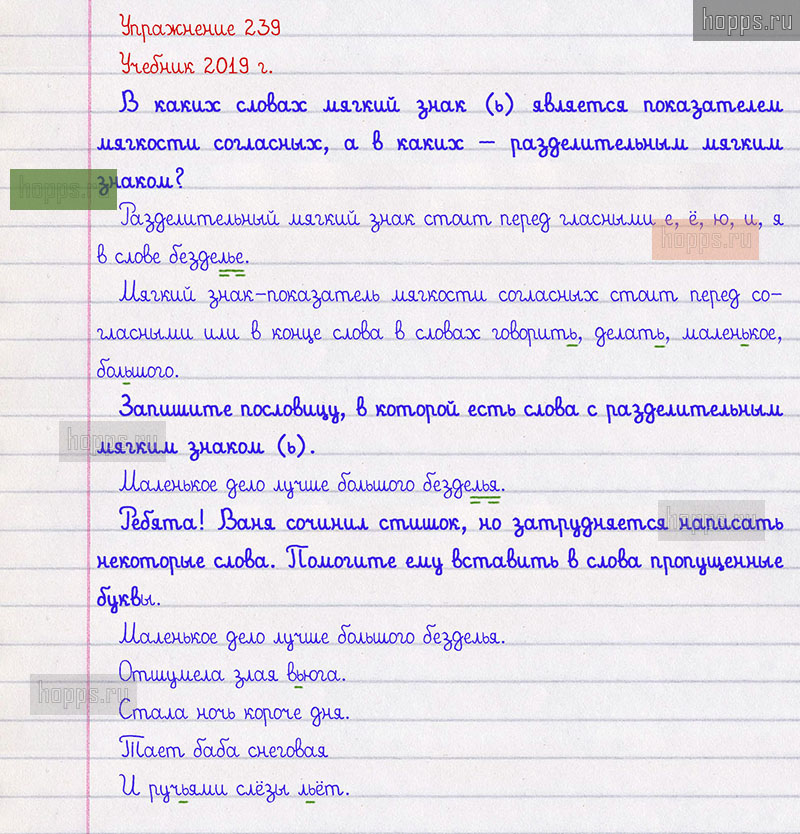 hopps.ru
Упражнение 239
Учебник 2019 г.
В каких словах мягкий знак (ь) является показателем
мягкости согласных, а в каких – разделительным мягким
знаком?
hopps.ru
Разделительный мягкий знак стоит перед гласными е, ё, ю, и, я
hopps.ru
в слове безделье.
Мягкий знак-показатель мягкости согласных стоит перед со-
гласными или в конце слова в словах говорить, делать, маленькое,
большого.
Запишите пословицу, в которой есть слова с разделительным
hopps.ru
мягким знаком (ь).
Маленькое дело лучше большого безделья.
hopps.ru
Ребята! Ваня сочинил стишок, но затрудняется написать
некоторые слова. Помогите ему вставить в слова пропущенные
буквы.
Маленькое дело лучше большого безделья.
Отшумела злая вьюга.
hopps.ru
Стала ночь короче дня.
Тает баба снеговая
И ручьями слёзы льёт.